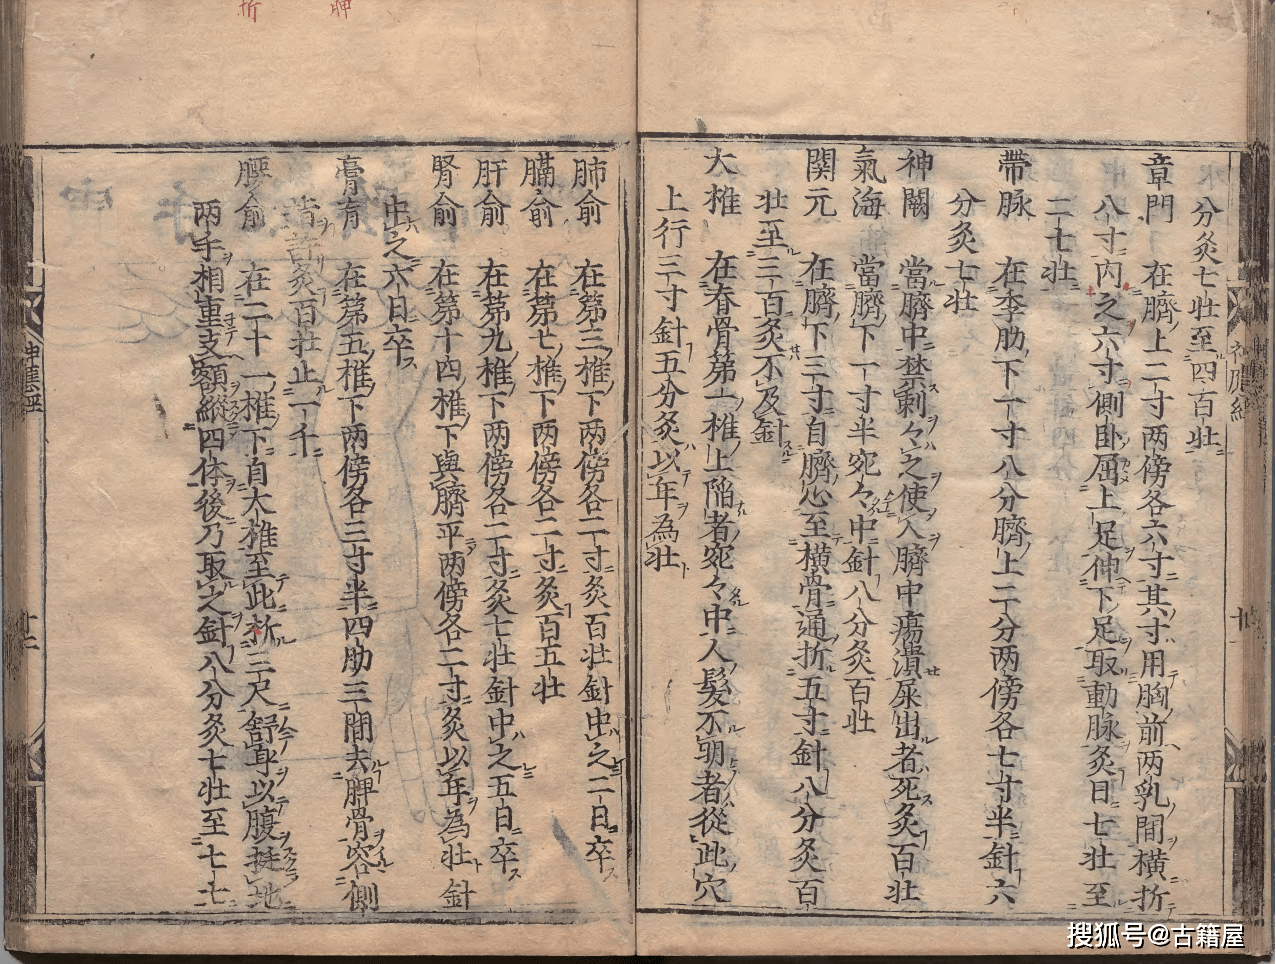 分灸七壮至四百壮
章門 在臍上二寸両傍各六寸其寸用胸前両乳間横折
八寸内之六寸側卧屈上足伸下足取動脉灸日七壮至
二七壮
帶脉 在季肋下一寸八分臍上二分両傍各七寸半針六
分灸七壮
神闕 當臍中禁刺々之使人臍中瘍潰屎出者死灸百壮
氣海 當臍下一寸半宛々中針八分灸百壮
関元 在臍下三寸自臍心至横骨通折五寸針八分灸百
壮至三百灸不及針
大椎 在脊骨第一椎上陥者宛々中人髮不明者從此穴
上行三寸針五分灸以年為壮
肺俞 在第三椎下両傍各二寸灸百壮針中之二日卒
膈俞 在第七椎下両傍各二寸灸百五壮
肝俞 在第九椎下両傍各二寸灸七壮針中之五日卒
腎俞 在第十四椎下與臍平両傍各二寸灸以年為壮針
中之六日卒
膏肓 在第五椎下両傍各三寸半四肋三間去胛骨容側
指許灸百壮止一千
腰俞 在二十一椎下自大椎至此折三尺舒身以腹挺地
両手相重支額縱四体後乃取之針八分灸七壮至七七
神應経
神應経
胛
折
搜狐号@古籍屋